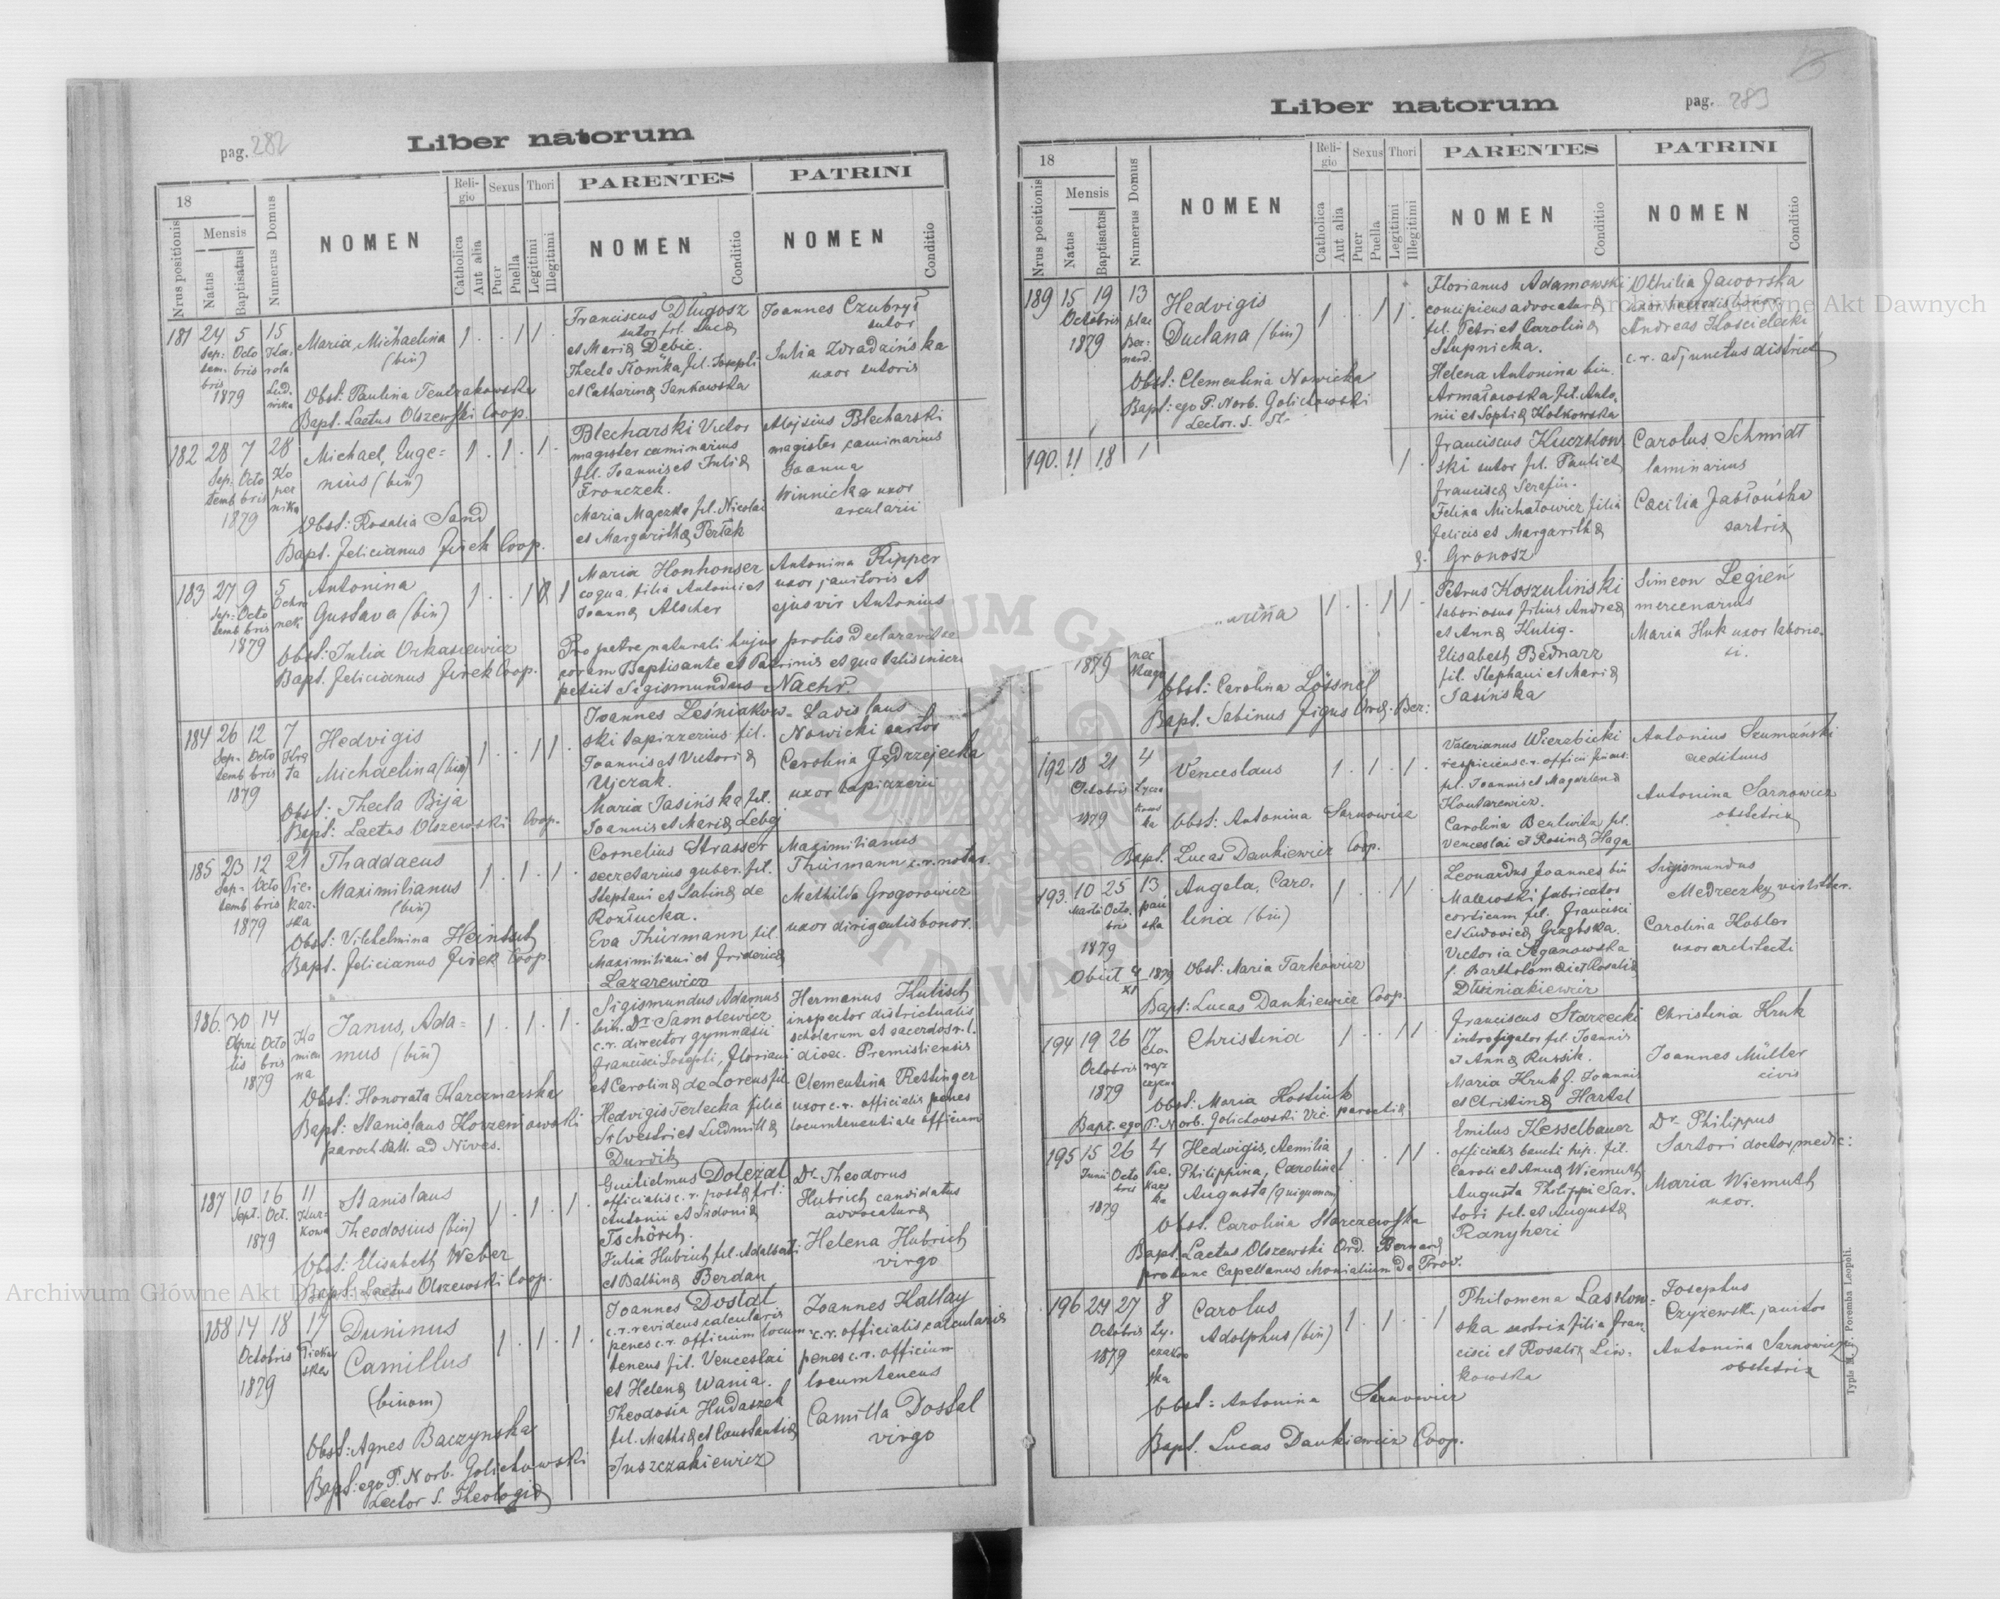 pag. 282
Liber natorum
18
Nrus positionis
Mensis
Natus
Baptisatus
Numerus Domus
NOMEN
Religio
Catholica
Aut alia
Sexus
Puer
Puella
Thori
Legitimi
Illegitimi
PARENTES
NOMEN
Conditio
PATRINI
NOMEN
Conditio
181 24 5 15
Sep: Octo
tem bris
bris
1879
Maria, Michaelina
(bin)
Obst: Paulina
Bapt. Laetus Olszewski Coop.
Franciscus Długosz
sutor fil. Lucae
et Mariae Debic.
Thecla Słomka fil. Josephi
et Catharinae Jankowska
Joannes Czubryt
sutor
Julia Zdradzińska
uxor sutoris
182 28 7 28
Sep: Octo
temb bris
1879
Ko
per
nika
Michael, Euge=
nius (bin)
Obst: Rosalia Sand
Bapt. Felicianus Firek Coop.
Blecharski Victor
magister caminarius
fil. Joannis et Juliae
Fronczek.
Maria Mączka fil. Nicolai
et Margarithae Perłak
Aloisius Blecharski
magister caminarius
Joanna
Winnicka uxor
arcularii
183 27 9 5
Sep: Octo
temb bris
1879
Antonina
Gustava (bin)
Obst: Julia
Bapt. Felicianus Firek Coop.
Maria Honhonser
coqua, filia Antonii et
Joannae Alscher
Antonina Ripper
uxor janitoris et
ejus vir Antonius
Pro patre naturali hujus prolis declaravit se
coram Baptisante et Patrinis et qua talis inseri
petiit Sigismundus Nachr.
184 26 12 7
Sep: Octo
temb bris
1879
Hedvigis
Michaelina (bin)
Obst: Thecla Bija
Bapt: Laetus Olszewski Coop.
Joannes Leśniakow-
ski tapizzerius fil.
Joannis et Victoriae
Ujczak.
Maria Jasińska fil.
Joannis et Mariae
Ladislaus
Nowicki sartor
Carolina Jędrzejecka
uxor tapizzerii
185 23 12 21
Sep: Octo
temb bris
1879
Pie-
kar-
ska
Thaddaeus
Maximilianus
(bin)
Obst: Vilhelmina Heintsch
Bapt. Felicianus Firek Coop.
Cornelius Strasser
secretarius guber. fil.
Stephani et Sabinae de
Rozłucka.
Eva Thürmann fil.
Maximiliani et Fridericae
Lazarewicz
Maximilianus
Thürmann c.r. notar.
Mathilda Grogorowicz
uxor dirigentis bonor.
186. 30 14
Apri Octo
lis bris
1879
Ka
mien
na
Janus, Ada=
mus (bin)
Obst: Honorata Karczmarska
Bapt: Stanislaus Korzeniowski
paroch. ad Nives.
Sigismundus Adamus
bin. Dr Samolewicz
c.r. director gymnasii
Francisci Josephi, Floriani
et Carolinae de Lorens fil.
Hedvigis Terlecka filia
Silvestri et Ludmillae
Durdik
Hermanus Kulisch
inspector districtualis
scholarum et sacerdos r. l.
dioec. Premisliensis
Clementina Rettinger
uxor c.r. officialis penes
locumtenentiale officium
187 10 16 11
Sept. Oct.
1879
Kur-
kowa
Stanislaus
Theodosius (bin)
Obst: Elisabeth Weber
Bapt: Laetus Olszewski Coop.
Guilielmus Doležal
officialis c.r. postae fil:
Antonii et Sidoniae
Tschörch.
Julia Hubrich fil. Adalberti
et Balbinae Berdau
Dr Theodorus
Hubrich candidatus
advocaturae
Helena Hubrich
virgo
188 14 18 17
Octobris
1879
Duninus
Camillus
(binom)
Obst: Agnes Baczynska
Bapt: ego P. Norb. Golichowski
Lector S. Theologiae
Joannes Dostal
c.r. revidens calcularis
penes c.r. officium locum-
tenens fil. Venceslai
et Helenae Wania.
Theodosia Hudaszek
fil. Mathiae et Constantiae
Juszczakiewicz
Joannes Kallay
c.r. officialis calcularis
penes c.r. officium
locumtenens
Camilla Dostal
virgo
Liber natorum
pag. 283
18
Nrus positionis
Mensis
Natus
Baptisatus
Numerus Domus
NOMEN
Religio
Catholica
Aut alia
Sexus
Puer
Puella
Thori
Legitimi
Illegitimi
PARENTES
NOMEN
Conditio
PATRINI
NOMEN
Conditio
189 15 19 13
Octobris
1879
plac
Ber-
nard.
Hedvigis
Duclana (bin)
Obst: Clementina Nowicka
Bapt: ego P. Norb. Golichowski
Lector. S.
Florianus Adamowski
concipiens advocaturae
fil. Petri et Carolinae
Stupnicka.
Helena Antonina bin.
Armatowska fil. Anto,
nii et Sophiae Kolkowska
Othilia Jaworska
Andreas Kościelecki
c.r. adjunctus district
190. 11 18
Franciscus Kuczkow
ski sutor fil. Pauli et
Franciscae Serafin.
Felina Michałowicz filia
Felicis et Margarithae
Gronosz
Carolus Schmidt
laminarius
Caecilia Jabłońska
sartrix
1879
Obst: Carolina Lössnel
Bapt. Sabinus Figus Ord. Ber:
Petrus Koszuliński
laboriosus filius Andreae
et Annae Kulig.
Elisabeth Bednarz
fil. Stephani et Mariae
Jasińska
Simeon Legień
mercenarius
Maria Huk uxor laborio.
si.
192 18 21 4
Octobris
1879
Lycza
kows
ka
Venceslaus
Obst: Antonina Sarnowicz
Bapt. Lucas Dankiewicz Coop.
Valerianus Wierzbicki
respiciens c.r. officii
fil. Joannis et Magdalenae
Kontarewicz.
Carolina Bentwita fil.
Venceslai et Rosinae Haga
Antonius Szumański
aedituus
Antonina Sarnowicz
obstetrix
193. 10 25 13
Martii Octo.
bris
1879
pań
ska
Obiit 4/XI 1879
Angela, Caro.
lina (bin)
Obst: Maria Tarkowicz
Bapt: Lucas Dankiewicz Coop.
Leonardus Joannes bin
Malewski fabricator
cordicum fil. Francisci
et Ludovicae Grąbska.
Victoria Aganowska
f. Bartholomaei et Rosaliae
Dłużniakiewicz
Sigismundus
Medreczky vir litter.
Carolina Kobler
uxor architecti
194 19 26 17
Octobris
1879
Christina
Obst: Maria Hostiuk
Bapt. ego P. Norb. Golichowski Vic. parochiae
Franciscus Starzecki
introligator fil. Joannis
et Annae Russik.
Maria Hruk f. Joannis
et Christinae Hartel
Christina Hruk
Joannes Müller
civis
195 15 26 4
Junii Octo
bris
1879
Pie.
kars
ka
Hedwigis, Aemilia
Philippina, Carolina
Augusta (quiquenom)
Obst. Carolina Starczewska
Bapt. Laetus Olszewski Ord. Bernard
pro tunc Capellanus Monialium De Prov.
Emilus Kesselbauer
officialis bancti hip. fil.
Caroli et Annae Wiemuth
Augusta Philippi Sar-
tori fil. et Augustae
Ranyheri
Dr Philippus
Sartori doctor medic:
Maria Wiemuth
uxor.
196 24 27 8
Octobris
1879
Ly.
czako
ska
Carolus
Adolphus (bin)
Obst: Antonina Sarnowicz
Bapt. Lucas Dankiewicz Coop.
Philomena Laskow-
ska sartrix filia Fran
cisci et Rosaliae Lin-
kowska
Josephus
Czyżewski janitor
Antonina Sarnowicz
obstetrix
Typis M. F. Poremba Leopoli.
Archiwum Główne Akt Dawnych
Archiwum Główne Akt Dawnych